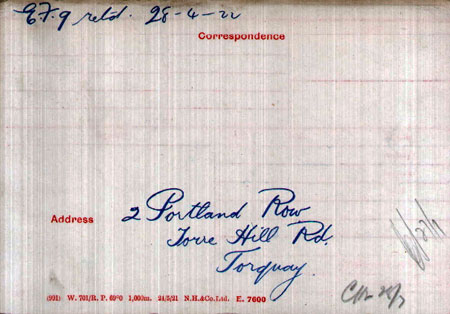 EF.9 retd. 28-4-22
Correspondence
Address
2 Portland Row
Torre Hill Rd.
Torquay.
(901) W. 701/R. P. 6980 1,000m. 24/5/21 N.H.&Co.Ltd. E. 7600